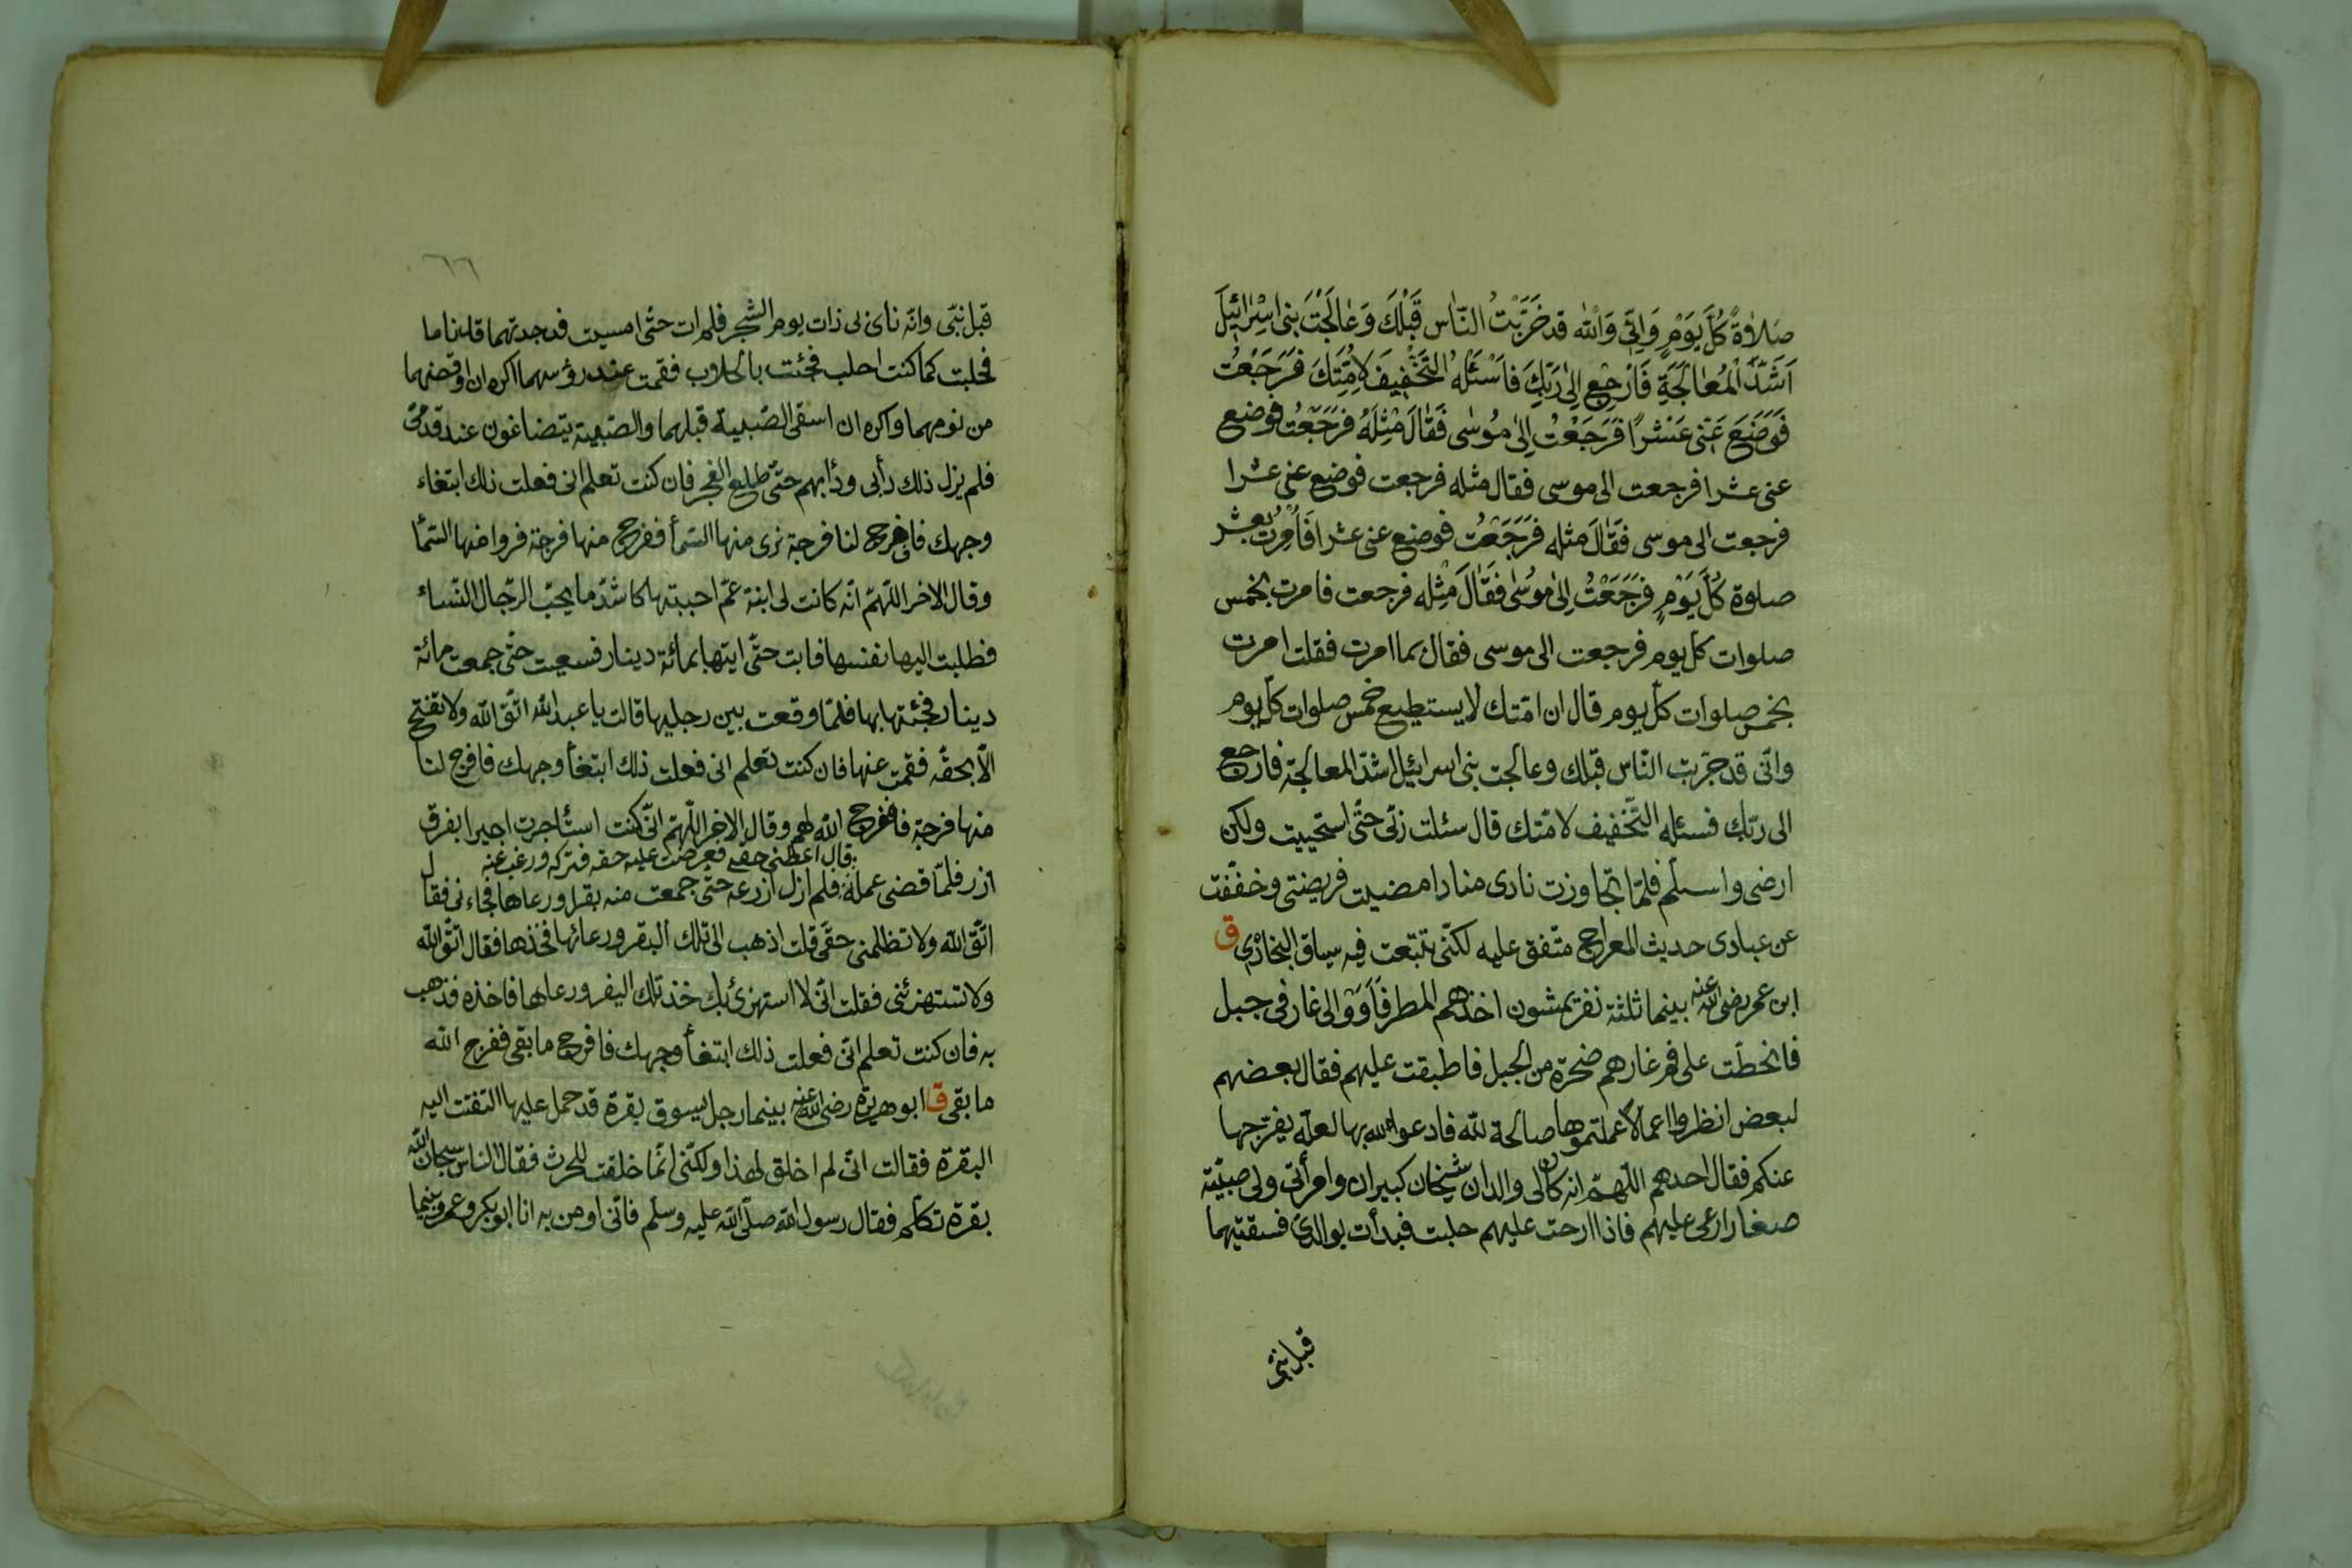 صَلٰوةً كُلَّ يَوْمٍ وَاِنّى وَاللّٰه قد جَرَّبْتُ النَّاس قَبْلَكَ وَعَالَجْتُ بَنى اِسْرائيلَ
اَشَدَّ الْمُعَالَجَةِ فَارْجِعْ اِلىٰ رَبِّكَ فَاَسْئَلْهُ التَّخْفِيفَ لِاُمَّتِكَ فَرَجَعْتُ
فَوَضَعَ عَنّى عَشْرًا فَرَجَعْتُ اِلىٰ مُوسٰى فَقَالَ مِثْلَهُ فَرَجَعْتُ فوضع
عنى عشرا فرجعت الى موسى فقال مثله فرجعت فوضع عنى عشرا
فرجعت الى موسى فَقَالَ مثله فَرَجَعْتُ فوضع عنى عشرا فَاُمِرْتُ بعشر
صلوة كُلَّ يَوْمٍ فَرَجَعْتُ اِلىٰ مُوسٰى فَقَالَ مِثْله فرجعت فامرت بخمس
صلوات كلّ يوم فرجعت الى موسى فقال بما امرت فقلت امرت
بخمس صلوات كلّ يوم قال ان امّتك لا يستطيع خمس صلوات كلّ يوم
وانّى قد جرّبت النّاس قبلك وعالجت بنى اسرائيل اشدّ المعالجة فارجع
الى ربّك فسئله التّخفيف لامّتك قال سئلت ربّى حتّى استحييت ولكن
ارضى واسلّم فلمّا تجاوزت نادى مناد امضيت فريضتى وخفّفت
عن عبادى حديث المعراج متّفق عليه لكنّى تتبّعت فيه سياق البخارى ق
ابن عمر رضى اللّه عنه بينما ثلثة نفر يمشون اخذهم المطر فَاَوَوْا الى غار فى جبل
فانحطّت على فم غارهم صخرة من الجبل فاطبقت عليهم فقال بعضهم
لبعض انظروا اعمالا عملتموها صالحة للّه فادعوا اللّه بها لعلّه يفرّجها
عنكم فقال احدهم اللّهمّ انه كان لى والدان شيخان كبيران وامرأتى ولى صبيّة
صغار ارعى عليهم فاذا ارحت عليهم حلبت فبدأت بوالدىّ فسقتيهما
قبل بنىّ
٦٦
قبل بنىّ وانّه نأى بى ذات يوم الشّجر فلم ات حتّى امسيت فوجدتهما قد ناما
فحلبت كما كنت احلب فجئت بالحلاب فقمت عند رؤسهما اكره ان اوقظهما
من نومهما واكره ان اسقى الصّبية قبلهما والصّبية يتضاغون عند قدمىّ
فلم يزل ذلك دأبى ودأبهم حتّى طلع الفجر فان كنت تعلم انى فعلت ذلك ابتغاء
وجهك فافرج لنا فرجة نرى منها السّماء ففرج منها فرجة فروا منها السّما
وقال الاخر اللّهمّ انّه كانت لى ابنة عمّ احببتها كاشدّ ما يحبّ الرّجال النّساء
فطلبت اليها نفسها فابت حتّى اتيتها بمائة دينار فسعيت حتّى جمعت مائة
دينار فجئتها بها فلمّا وقعت بين رجليها قالت يا عبد اللّه اتّق اللّه ولا تفتح
الّا بحقّه فقمت عنها فان كنت تعلم انى فعلت ذلك ابتغاء وجهك فافرج لنا
منها فرجة ففرج اللّه لهم وقال الاخر اللّهمّ انّى كنت استأجرت اجيرا بفرق
قال اعطنى حقى فعرضت عليه حقه فتركه ورغب عنه
ارز فلمّا قضى عمله فلم ازل ازرعه حتّى جمعت منه بقرا ورعاها فجاءنى فقال
اتّق اللّه ولا تظلمنى حقّى قلت اذهب الى تلك البقر ورعائها فخذها فقال اتّق اللّه
ولا تستهزئنى فقلت انّى لا استهزئ بك خذ تلك البقر ورعاها فاخذه فذهب
به فان كنت تعلم انّى فعلت ذلك ابتغاء وجهك فافرج ما بقى ففرج اللّه
ما بقى ق ابو هريرة رضى اللّه عنه بينما رجل يسوق بقرة قد حمل عليها التفتت اليه
البقرة فقالت انّى لم اخلق لهذا ولكنّى انّما خلقت للحرث فقال النّاس سبحان اللّه
بقرة تكلّم فقال رسول اللّه صلّى اللّه عليه وسلّم فانّى اومن به انا ابو بكر وعمر وبينما